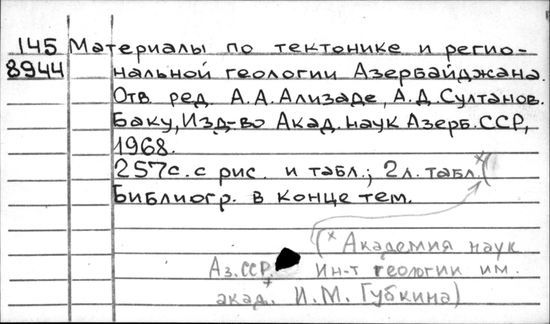 145 Материалы по тектонике и регио-
8944 нальной геологии Азербайджана.
Отв. ред. А.А.Ализаде, А.Д.Султанов.
Баку, Изд-во Акад. наук Азерб.ССР,
1968.
257с. с рис. и табл.; 2л. табл.*(
Библиогр. в конце тем.
(*Академия наук
Аз.ССР. Ин-т геологии им.
акад. И.М. Губкина)